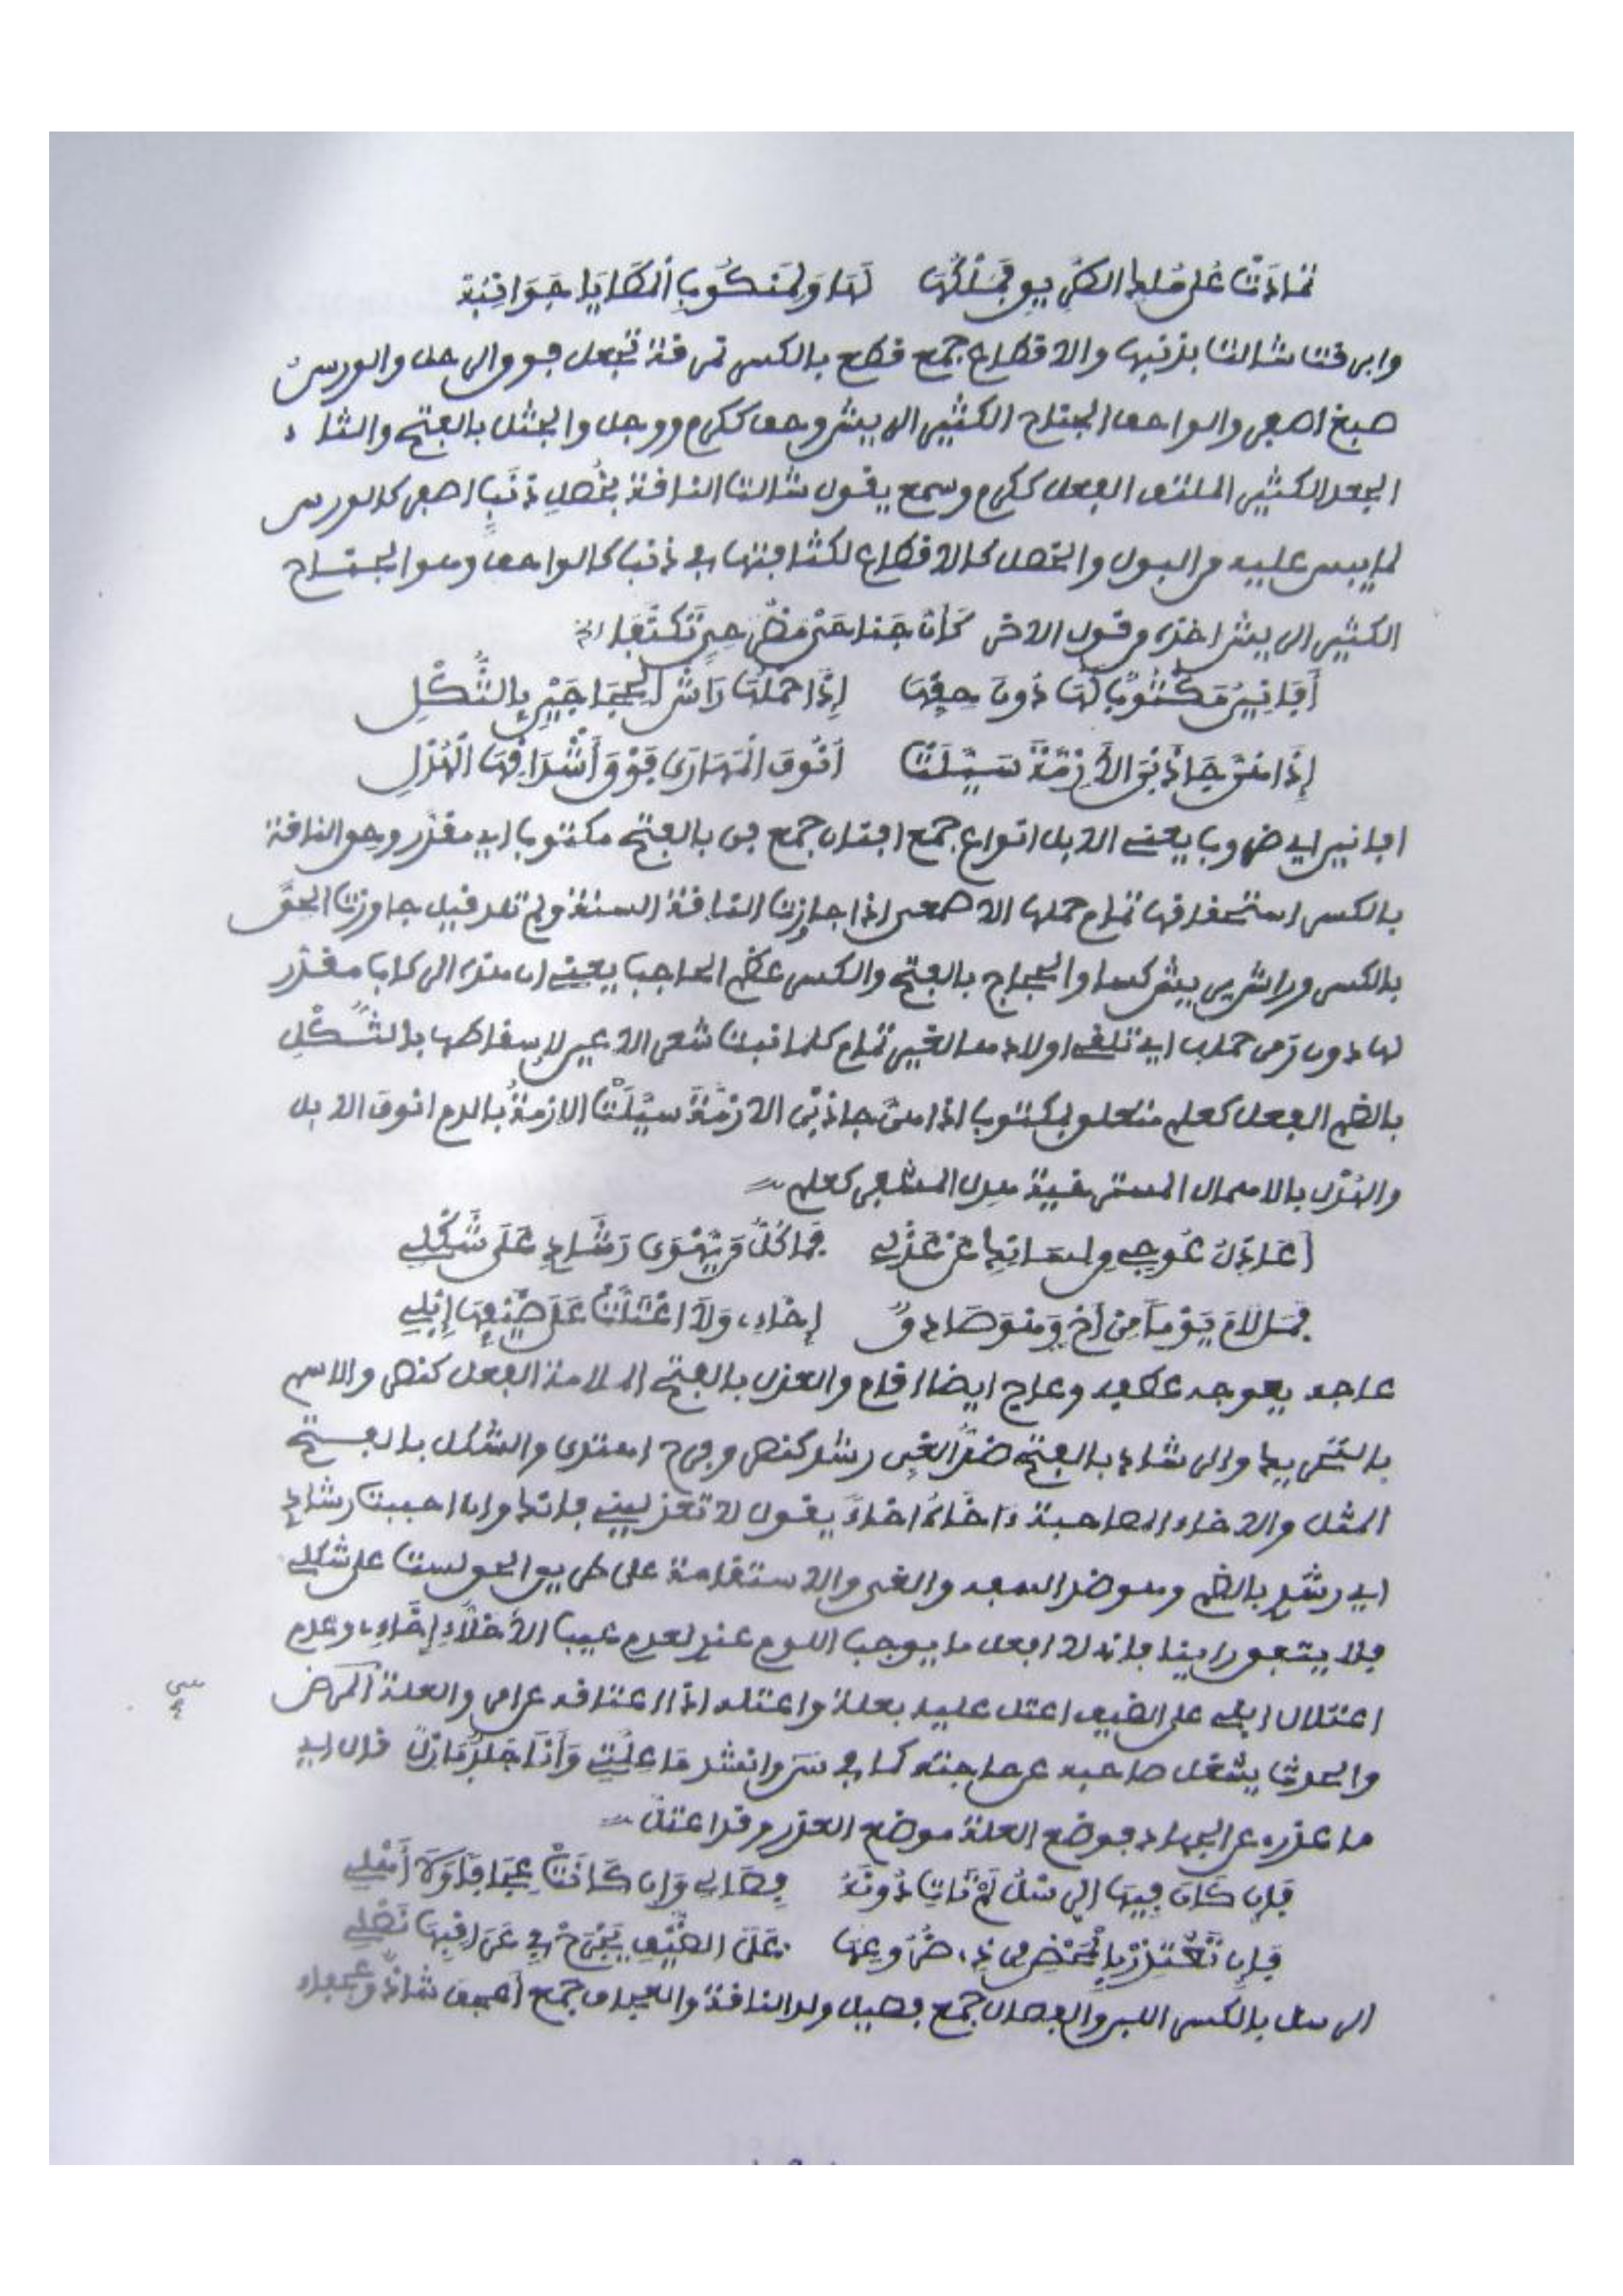 تمادت على ملك الطريق فسلكها لها ولمنكوب المطايا جوانبه
وابرقت شالت بذنبها والاقطاع جمع قطع بالكسر نمرقة تجعل فوق الرحل والورس
صبغ اصفر والواحف الجناح الكثير الريش وحف ككرم ووجل والجثل بالفتح والثاء
الجعد الكثير الملتف الفعل ككرم وسمع يقول شالت الناقة بخصل ذنب اصفر كالورس
لما يبس عليه من البول والخصل كالاقطاع لكثافتها في ذنب كالواحف وهو الجناح
الكثير الريش اخذه من قول الاخر كأن جناحي مضرحي تكنفا الخ
أفانين مكتوبا لها دون حقها إذا حملها راش الحجاجين بالثكل
إذا هن جاذبن الأزمة سيلت أنوف المهارى فوق أشداقها الهدل
افانين اي ضروبا يعني الابل انواع جمع افنان جمع فن بالفتح مكتوبا اي مقدر وحق الناقة
بالكسر استحقاقها تمام حملها الاصمعي اذا جازت الناقة السنة ولم تلد قيل جاوزت الحق
بالكسر وراش يريش كسا والحجاج بالفتح والكسر عظم الحاجب يعني ان هذه الركاب مقدر
لها دون زمن حملها اي تلقي اولادها لغير تمام كلما نبت شعر الاعين لإسقاطها بالثكل
بالضم الفعل كعلم متعلق بمكتوبا اذا هن جاذبن الازمة سيلت الازمة بالدم انوف الابل
والهدل بالاهمال المسترخية هدل المشفر كعلم
أعاذل عوجي من لسانك عن عذلي فما كل من يهوى رشادي على شكلي
فما لام يوما من أخ وهو صادق إخائي ولا اعتلت على ضيفها إبلي
عاجه يعوجه عطفه وعاج ايضا اقام والعذل بالفتح الملامة الفعل كنصر والاسم
بالتحريك والرشاد بالفتح ضد الغي رشد كنصر وفرح اهتدى والشكل بالفتح
المثل والاخاء المصاحبة ءاخاه اخاء يقول لا تعذليني فانك وان احببت رشادي
اي رشدي بالضم وهو ضد السفه والغي والاستقامة على طريق الحق لست على شكلي
فلا يتفق راينا فانه لا افعل ما يوجب اللوم عندي لعدم عيب الأخلاء إخائي وعدم
اعتلال ابلي على الضيف اعتل عليه بعلة واعتله اذا اعتاقه عن امر والعلة المرض
والحدث يشغل صاحبه عن حاجته كما في س وانشد ما علتي وأنا جلد نازل قال اي
ما عذري عن الجهاد فوضع العلة موضع العذر وقد اعتل
فإن كان فيها الرسل لم تات دونه فصالي وإن كانت عجافا ولا أهلي
فإن تعتذر بالمحض من ذي ضروعها على الضيف يجرح في عراقيبها نصلي
الرسل بالكسر اللبن والفصال جمع فصيل ولد الناقة والعجاف جمع أعجف شاذ وعجفاء